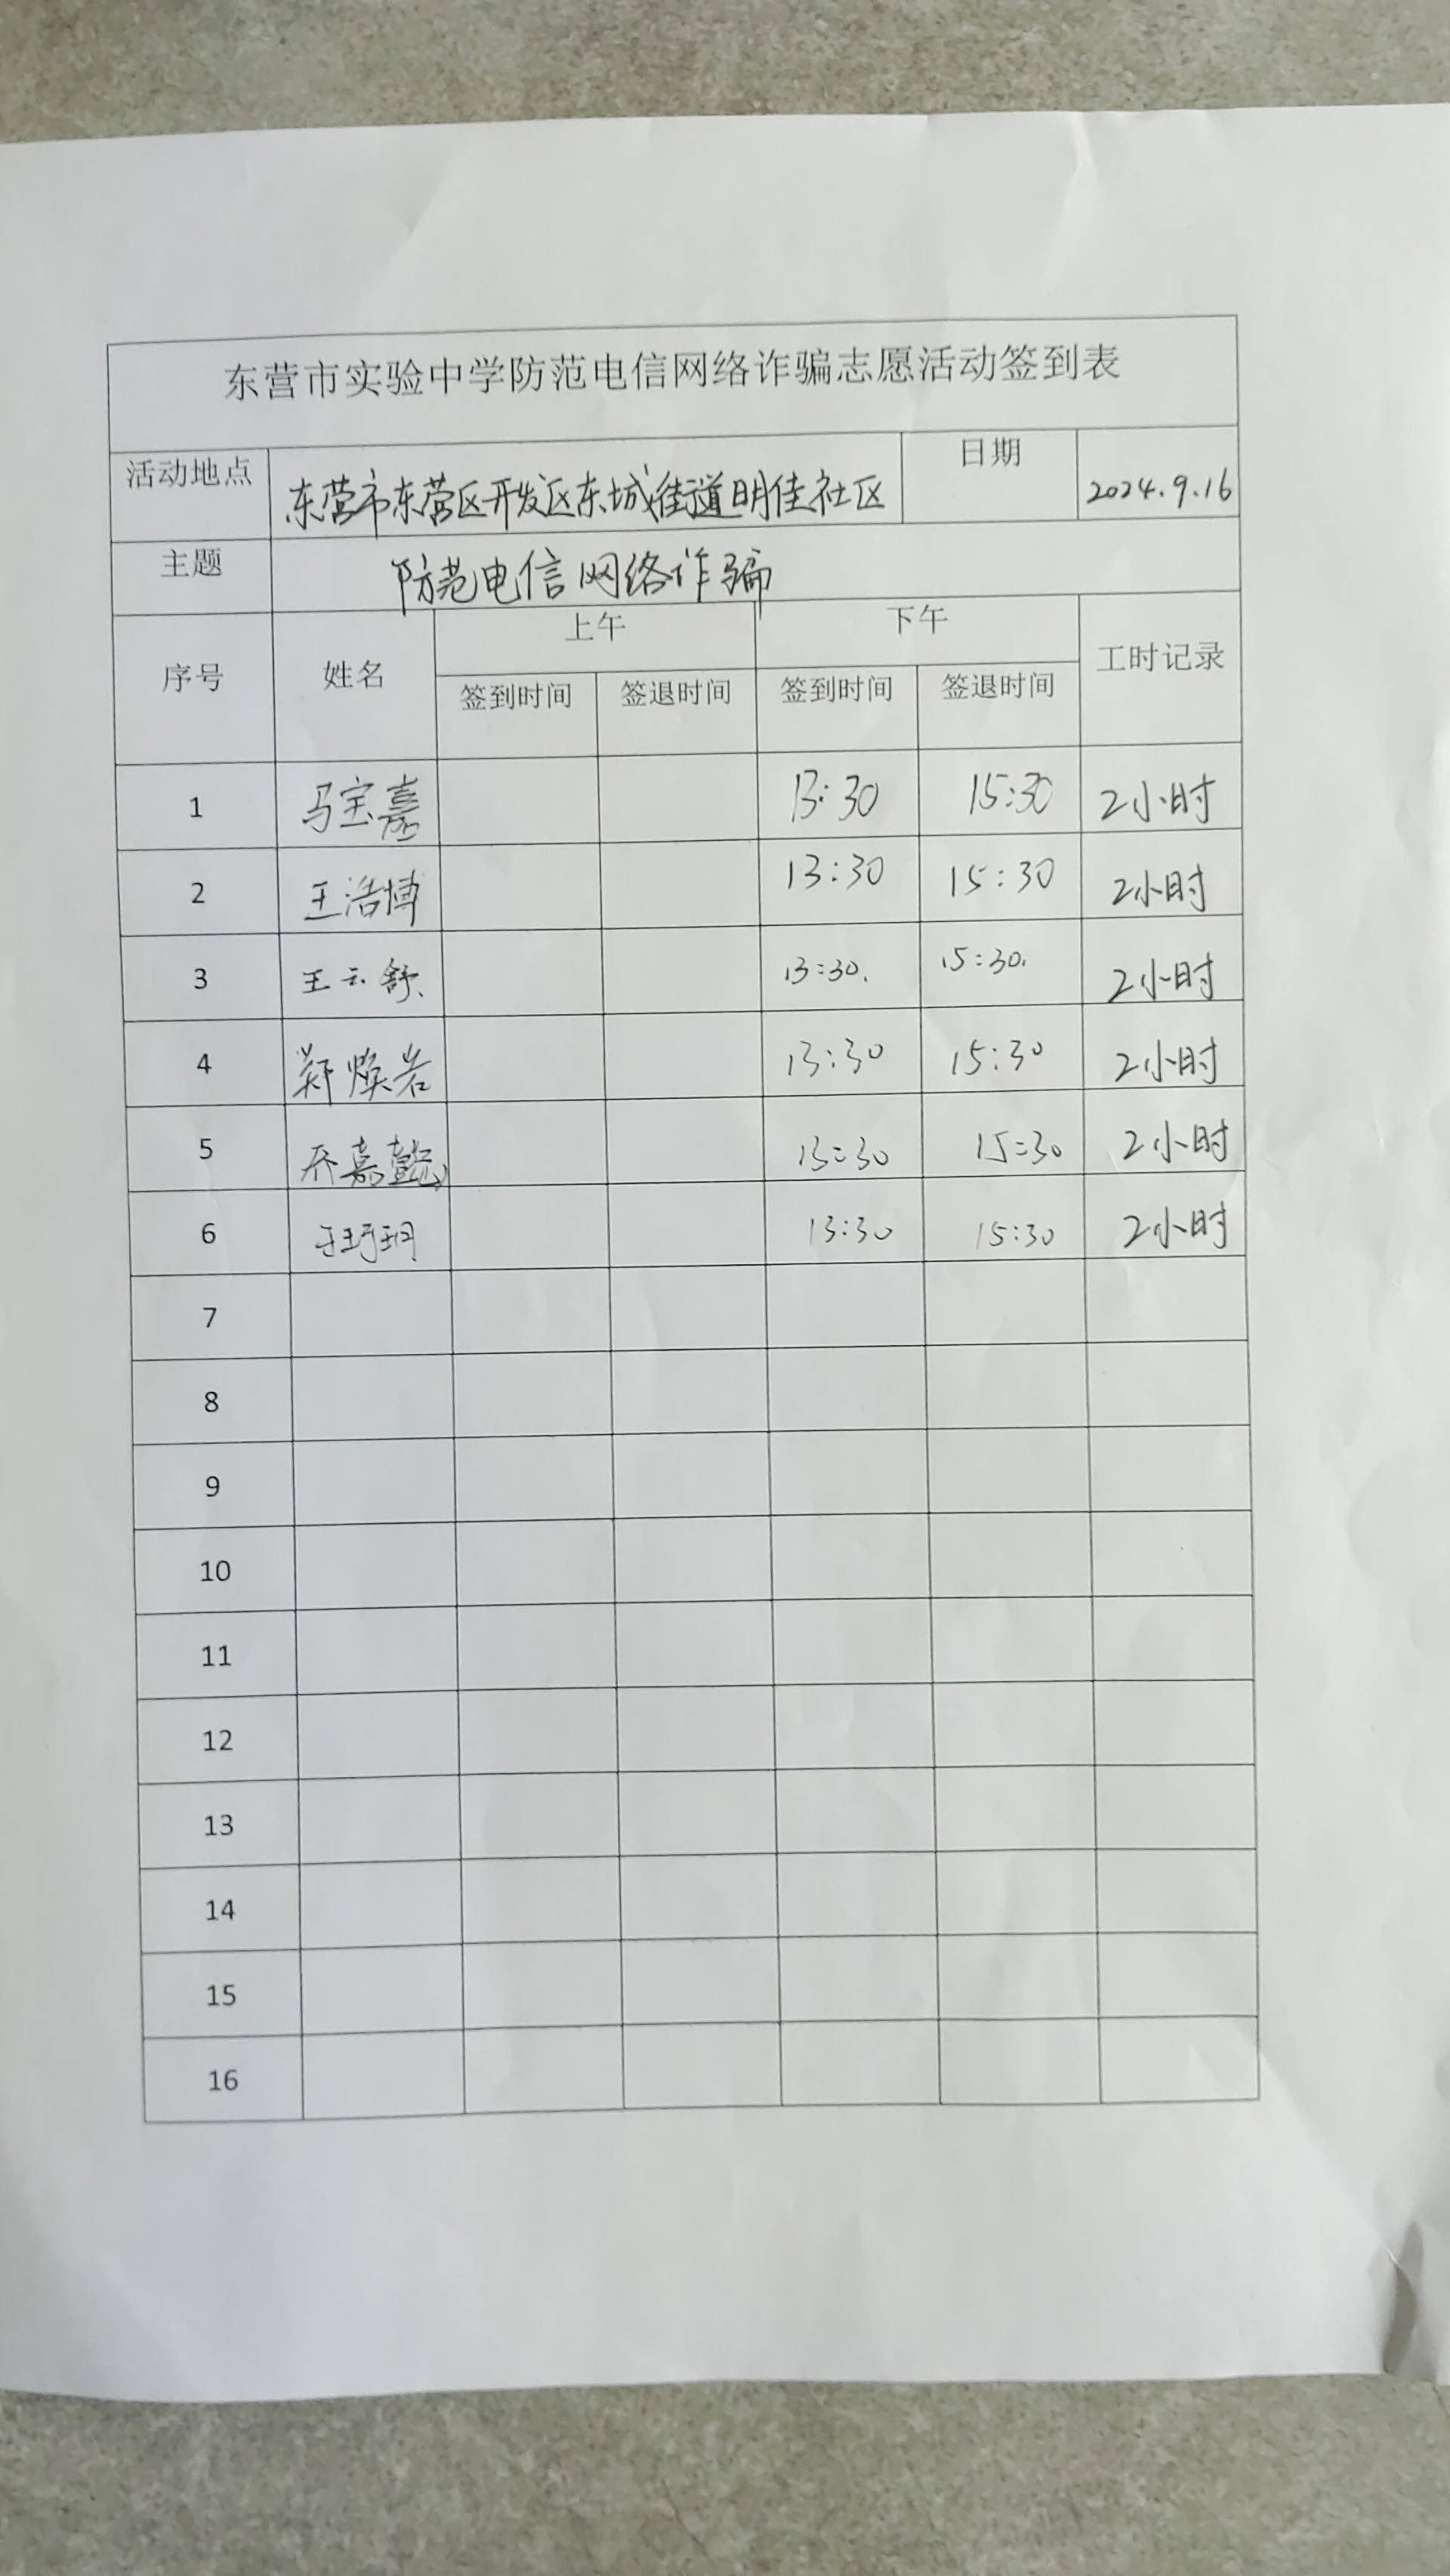 东营市实验中学防范电信网络诈骗志愿活动签到表
活动地点 东营市东营区开发区东城街道明佳社区 日期 2024.9.16
主题 防范电信网络诈骗
序号 姓名 上午 下午 工时记录
签到时间 签退时间 签到时间 签退时间
1 马宝嘉 13:30 15:30 2小时
2 王浩博 13:30 15:30 2小时
3 王云舒 13:30. 15:30. 2小时
4 郑焕岩 13:30 15:30 2小时
5 乔嘉懿 13:30 15:30 2小时
6 13:30 15:30 2小时
7
8
9
10
11
12
13
14
15
16